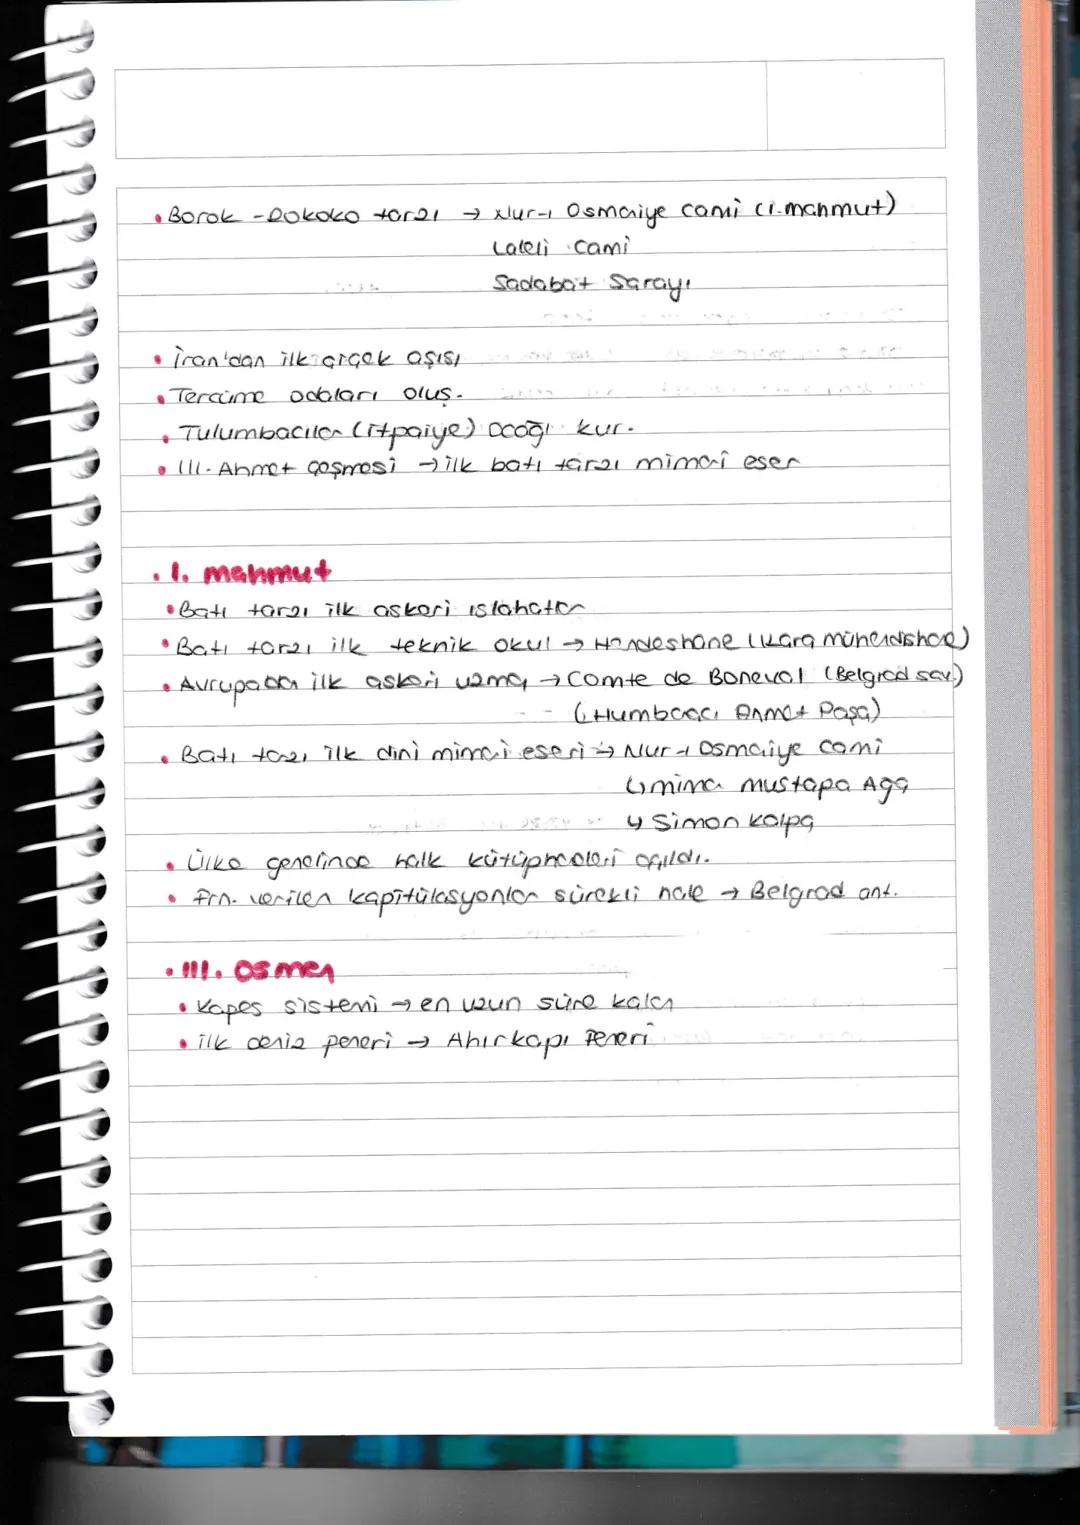 • Barok - Rokoko tarzı → Nur-ı Osmaniye cami (I. mahmut)
Laleli cami
Sadabat Sarayı
• İran'dan ilk çiçek aşısı
• Tercüme odaları oluş.
• Tulumbacılar (itfaiye) Ocağı kur.
• III. Ahmet çeşmesi → ilk batı tarzı mimari eser
• I. mahmut
• Batı tarzı ilk askeri ıslahatlar
• Batı tarzı ilk teknik okul → Hendeshane (Kara mühendishane)
• Avrupadan ilk askeri uzman → Comte de Boneval (Belgrad sav.)
(Humbaracı Ahmet Paşa)
• Batı tarzı ilk dini mimari eseri → Nur-ı Osmaiye cami
↳ mimar mustapa Ağa
↳ Simon kalpa
• Ülke genelinde halk kütüphaneleri açıldı.
• Frn. verilen kapitülasyonlar sürekli hale → Belgrad ant.
• III. Osman
• Kafes sistemi → en uzun süre kalan
• ilk deniz feneri → Ahırkapı Feneri